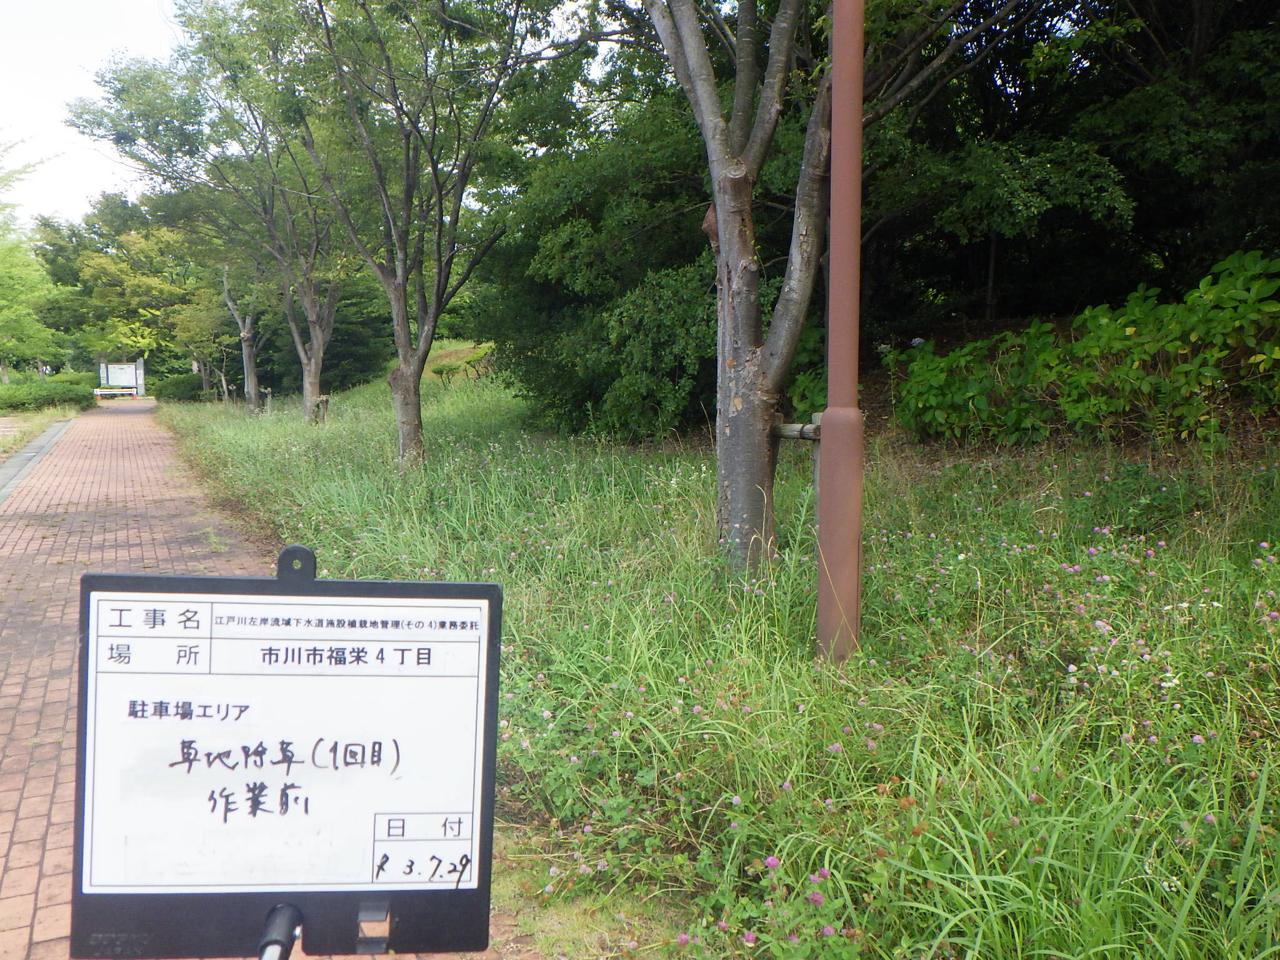 工事名 江戸川左岸流域下水道施設植栽地管理(その4)業務委託
場所 市川市福栄4丁目
駐車場エリア
草地除草(1回目)
作業前
日付
R 3.7.29